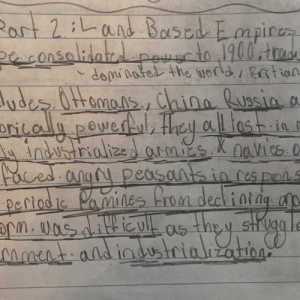 Part 2: Land Based Empires
consolidated power to 1900,
- dominated the world,
Ottomans, China Russia
powerful, they all lost in
industrialized armies & navies
faced angry peasants in
periodic famines from declining
was difficult as they struggle
and industrialization.